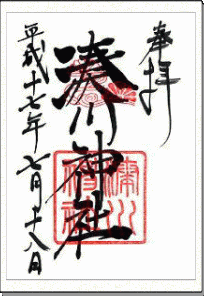 奉拝
湊川神社
平成十七年七月十八日
湊川
神社